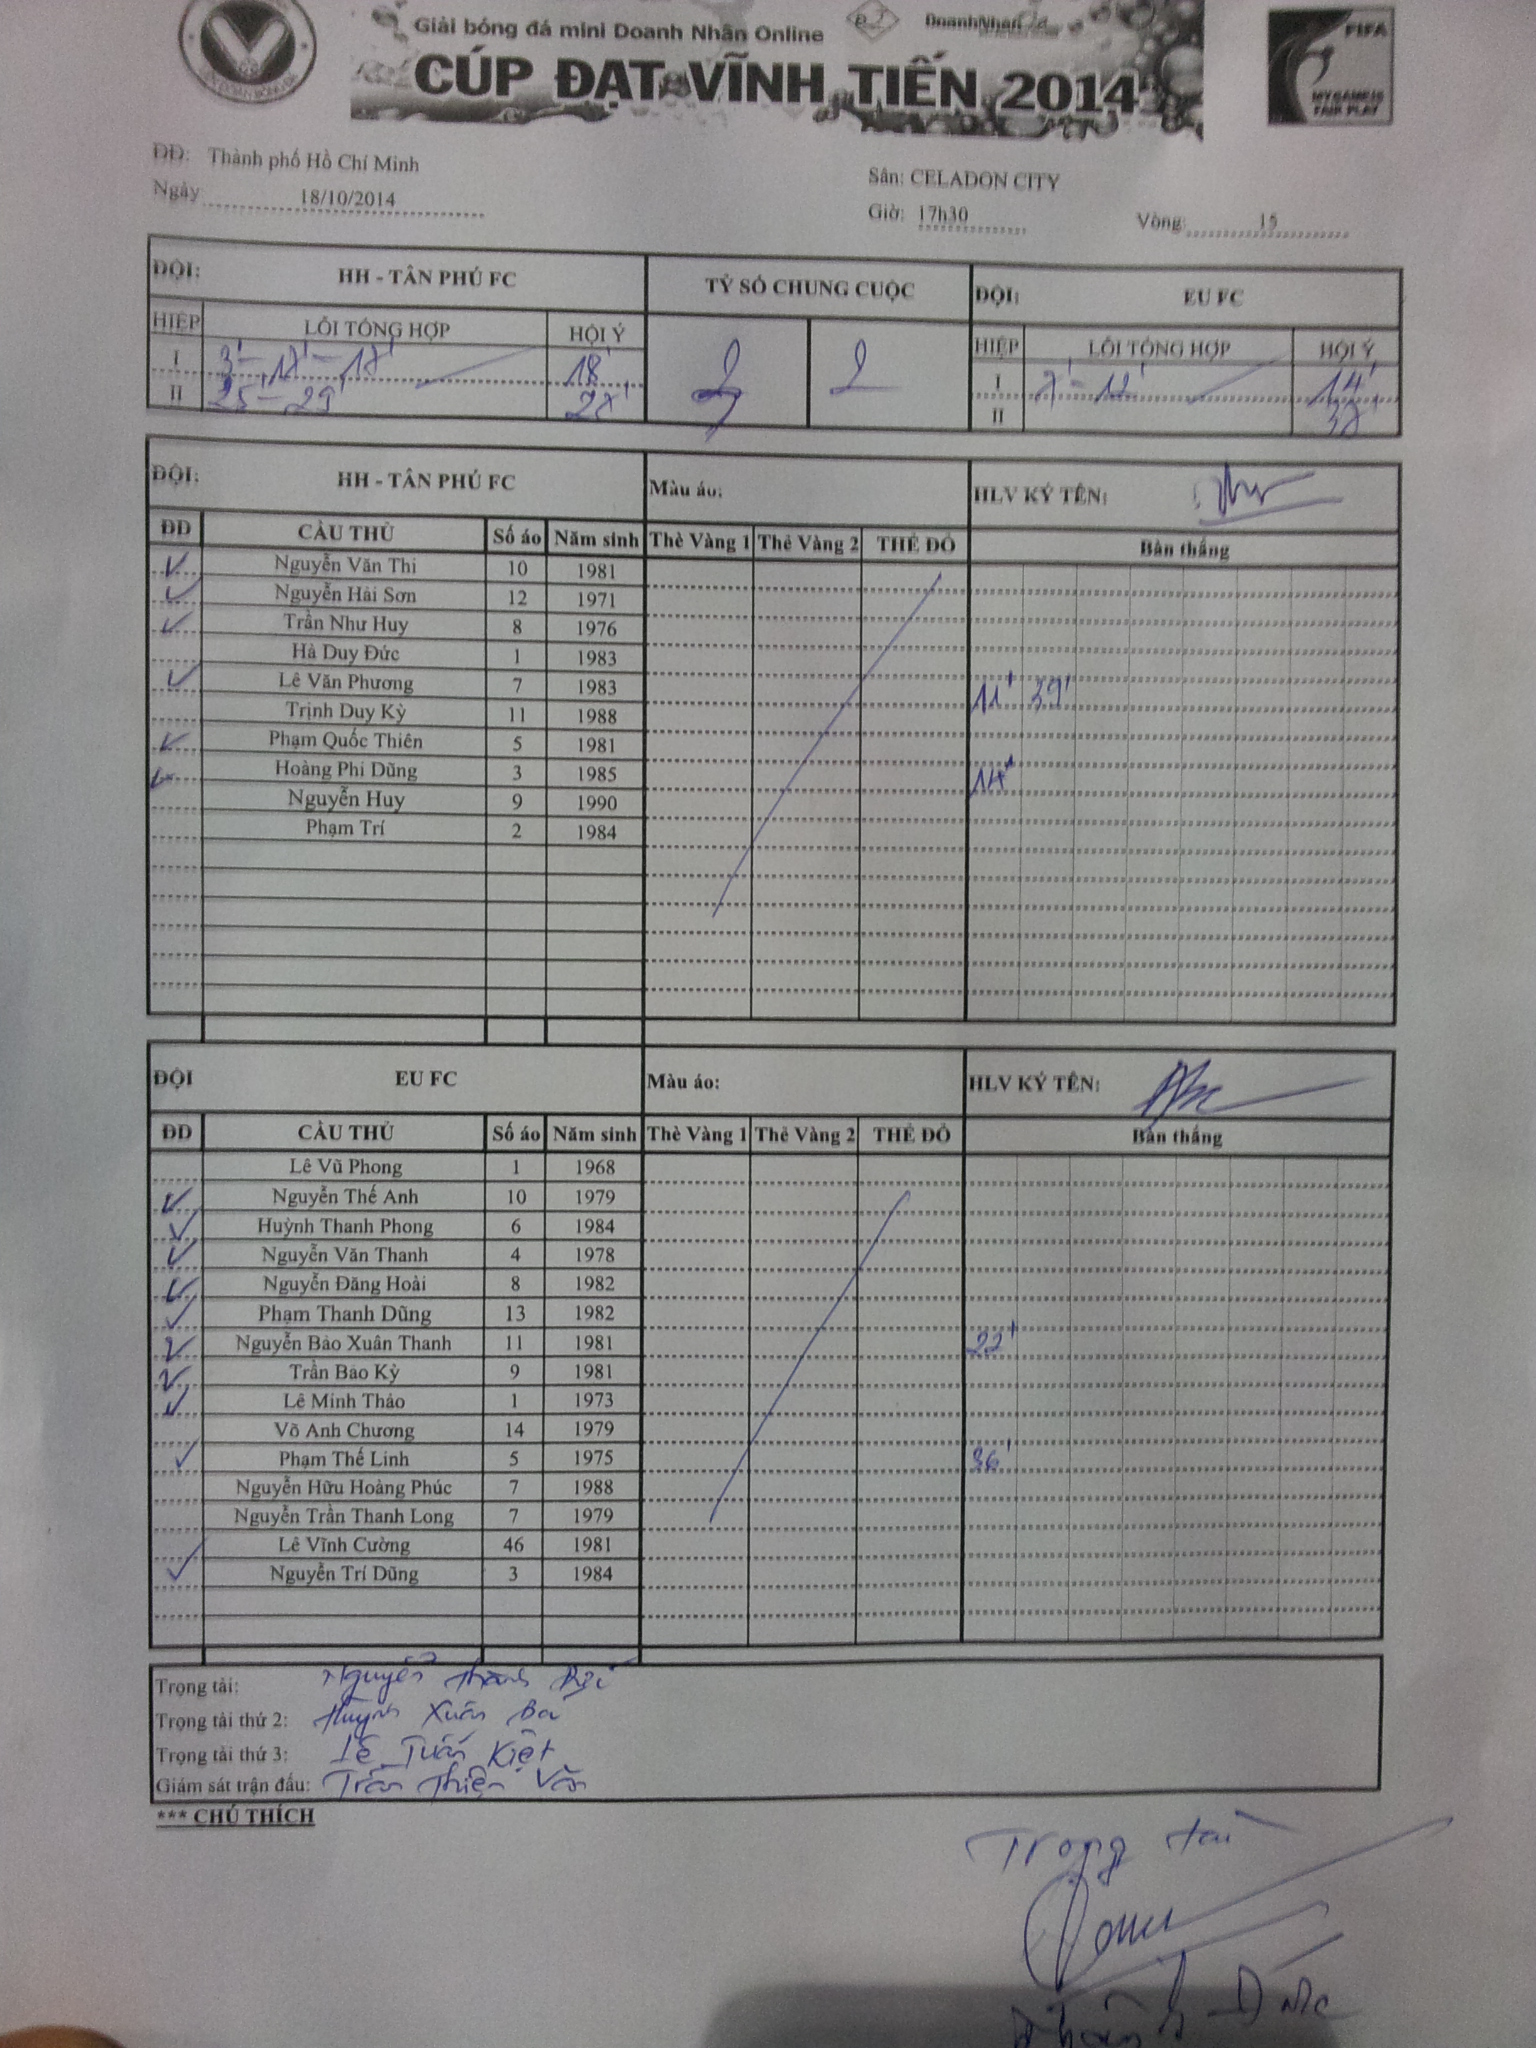 Giải bóng đá mini Doanh Nhân Online
DoanhNhan
CÚP ĐẠT VĨNH TIẾN 2014
FIFA
MY GAME IS
FAIR PLAY
ĐĐ: Thành phố Hồ Chí Minh
Sân: CELADON CITY
Ngày 18/10/2014
Giờ: 17h30 Vòng: 15
ĐỘI: HH - TÂN PHÚ FC TỶ SỐ CHUNG CUỘC ĐỘI: EU FC
HIỆP LỖI TỔNG HỢP HỘI Ý HIỆP LỖI TỔNG HỢP HỘI Ý
I 3' - 17' - 17' 18' 3 2 I 7' - 12' 14'
II 25' - 29' 27' II 37'
ĐỘI: HH - TÂN PHÚ FC Màu áo: HLV KÝ TÊN:
ĐD CẦU THỦ Số áo Năm sinh Thẻ Vàng 1 Thẻ Vàng 2 THẺ ĐỎ Bàn thắng
Nguyễn Văn Thi 10 1981
Nguyễn Hải Sơn 12 1971
Trần Như Huy 8 1976
Hà Duy Đức 1 1983
Lê Văn Phương 7 1983 11' 39'
Trịnh Duy Kỳ 11 1988
Phạm Quốc Thiên 5 1981
Hoàng Phi Dũng 3 1985 14'
Nguyễn Huy 9 1990
Phạm Trí 2 1984
ĐỘI EU FC Màu áo: HLV KÝ TÊN:
ĐD CẦU THỦ Số áo Năm sinh Thẻ Vàng 1 Thẻ Vàng 2 THẺ ĐỎ Bàn thắng
Lê Vũ Phong 1 1968
Nguyễn Thế Anh 10 1979
Huỳnh Thanh Phong 6 1984
Nguyễn Văn Thanh 4 1978
Nguyễn Đăng Hoài 8 1982
Phạm Thanh Dũng 13 1982
Nguyễn Bảo Xuân Thanh 11 1981 22'
Trần Bảo Kỳ 9 1981
Lê Minh Thảo 1 1973
Võ Anh Chương 14 1979
Phạm Thế Linh 5 1975 36'
Nguyễn Hữu Hoàng Phúc 7 1988
Nguyễn Trần Thanh Long 7 1979
Lê Vĩnh Cường 46 1981
Nguyễn Trí Dũng 3 1984
Trọng tài: Nguyễn Thành
Trọng tài thứ 2: Huỳnh Xuân Ba
Trọng tài thứ 3: Lê Tuấn Kiệt
Giám sát trận đấu: Trần Thiện Văn
*** CHÚ THÍCH
Trọng tài